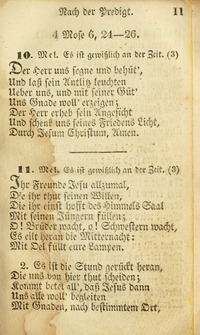 Nach der Predigt. 11
4 Mose 6, 24—26.
10. Mel. Es ist gewißlich an der Zeit. (3)
Der Herr uns segne und behüt',
Und laß sein Antlitz leuchten
Ueber uns, und mit seiner Güt'
Uns Gnade woll' erzeigen;
Der Herr erheb sein Angesicht
Und schenk uns seines Friedens Licht,
Durch Jesum Christum, Amen.
11. Mel. Es ist gewißlich an der Zeit. (3)
Ihr Freunde Jesu allzumal,
Die ihr thut seinen Willen,
Die ihr einst hofft des Himmels Saal
Mit seinen Jüngern füllen;
O! Brüder wacht, o! Schwestern wacht,
Es eilt heran die Mitternacht:
Mit Oel füllt eure Lampen.
2. Es ist die Stund gerückt heran,
Die uns von hier thut scheiden;
Kommt betet all', daß Jesus dann
Uns alle woll' begleiten
Mit Gnaden, nach bestimmtem Ort,